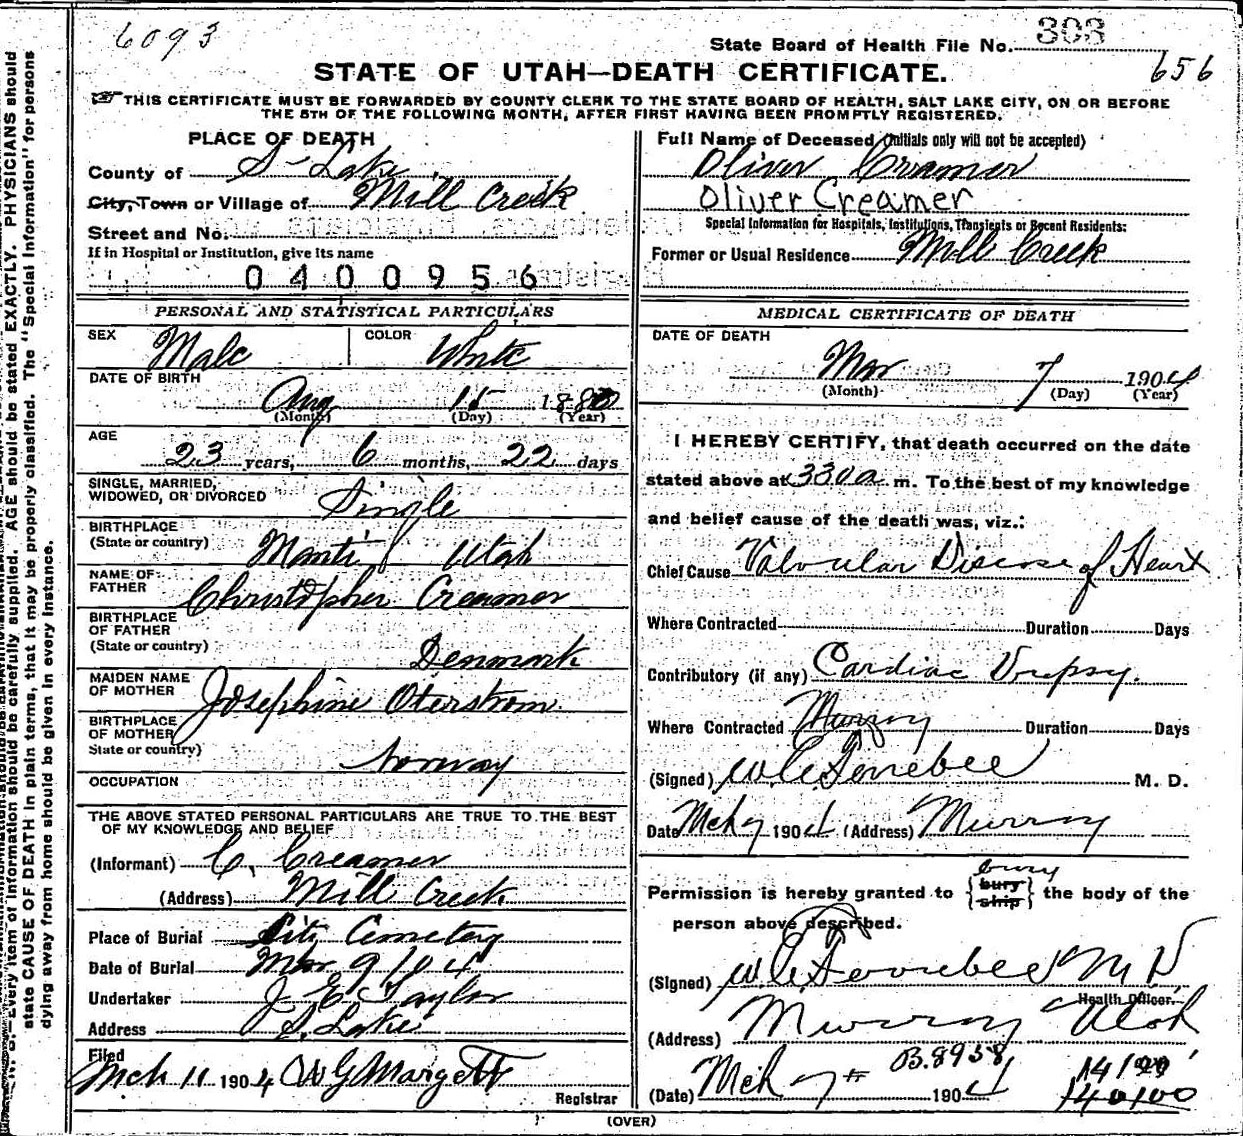 6093
State Board of Health File No. 303
656
STATE OF UTAH—DEATH CERTIFICATE.
THIS CERTIFICATE MUST BE FORWARDED BY COUNTY CLERK TO THE STATE BOARD OF HEALTH, SALT LAKE CITY, ON OR BEFORE
THE 5TH OF THE FOLLOWING MONTH, AFTER FIRST HAVING BEEN PROMPTLY REGISTERED.
PLACE OF DEATH
County of S Lake
City, Town or Village of Mill Creek
Street and No.
If in Hospital or Institution, give its name
0400956
Full Name of Deceased (Initials only will not be accepted)
Oliver Creamer
Oliver Creamer
Special Information for Hospitals, Institutions, Transients or Recent Residents:
Former or Usual Residence Mill Creek
PERSONAL AND STATISTICAL PARTICULARS
SEX Male COLOR White
DATE OF BIRTH
Aug 15 1880
(Month) (Day) (Year)
AGE
23 years, 6 months, 22 days
SINGLE, MARRIED,
WIDOWED, OR DIVORCED Single
BIRTHPLACE
(State or country) Manti Utah
NAME OF
FATHER Christopher Creamer
BIRTHPLACE
OF FATHER
(State or country) Denmark
MAIDEN NAME
OF MOTHER Josephine Oterstrom
BIRTHPLACE
OF MOTHER
State or country) Norway
OCCUPATION
THE ABOVE STATED PERSONAL PARTICULARS ARE TRUE TO THE BEST
OF MY KNOWLEDGE AND BELIEF
(Informant) C. Creamer
(Address) Mill Creek
Place of Burial Citi Cemetery
Date of Burial Mar 9 104
Undertaker J. E. Taylor
Address S. Lake
Filed
Mch 11 1904 W G Margett
Registrar
MEDICAL CERTIFICATE OF DEATH
DATE OF DEATH
Mar 7 1904
(Month) (Day) (Year)
I HEREBY CERTIFY, that death occurred on the date
stated above at 330a m. To the best of my knowledge
and belief cause of the death was, viz.:
Chief Cause Valvular Disease of Heart
Where Contracted Duration Days
Contributory (if any) Cardiac Dropsy.
Where Contracted Murray Duration Days
(Signed) M. D.
Date Mch 7 1904 (Address) Murray
bury
Permission is hereby granted to {bury ship} the body of the
person above described.
(Signed) M D
Health Officer.
(Address) Murray Utah
B.8938 14/90
(Date) Mch 7th 1904 140100
(OVER)
N. B.—Every item of information should be carefully supplied. AGE should be stated EXACTLY. PHYSICIANS should
state CAUSE OF DEATH in plain terms, that it may be properly classified. The "Special Information" for persons
dying away from home should be given in every instance.